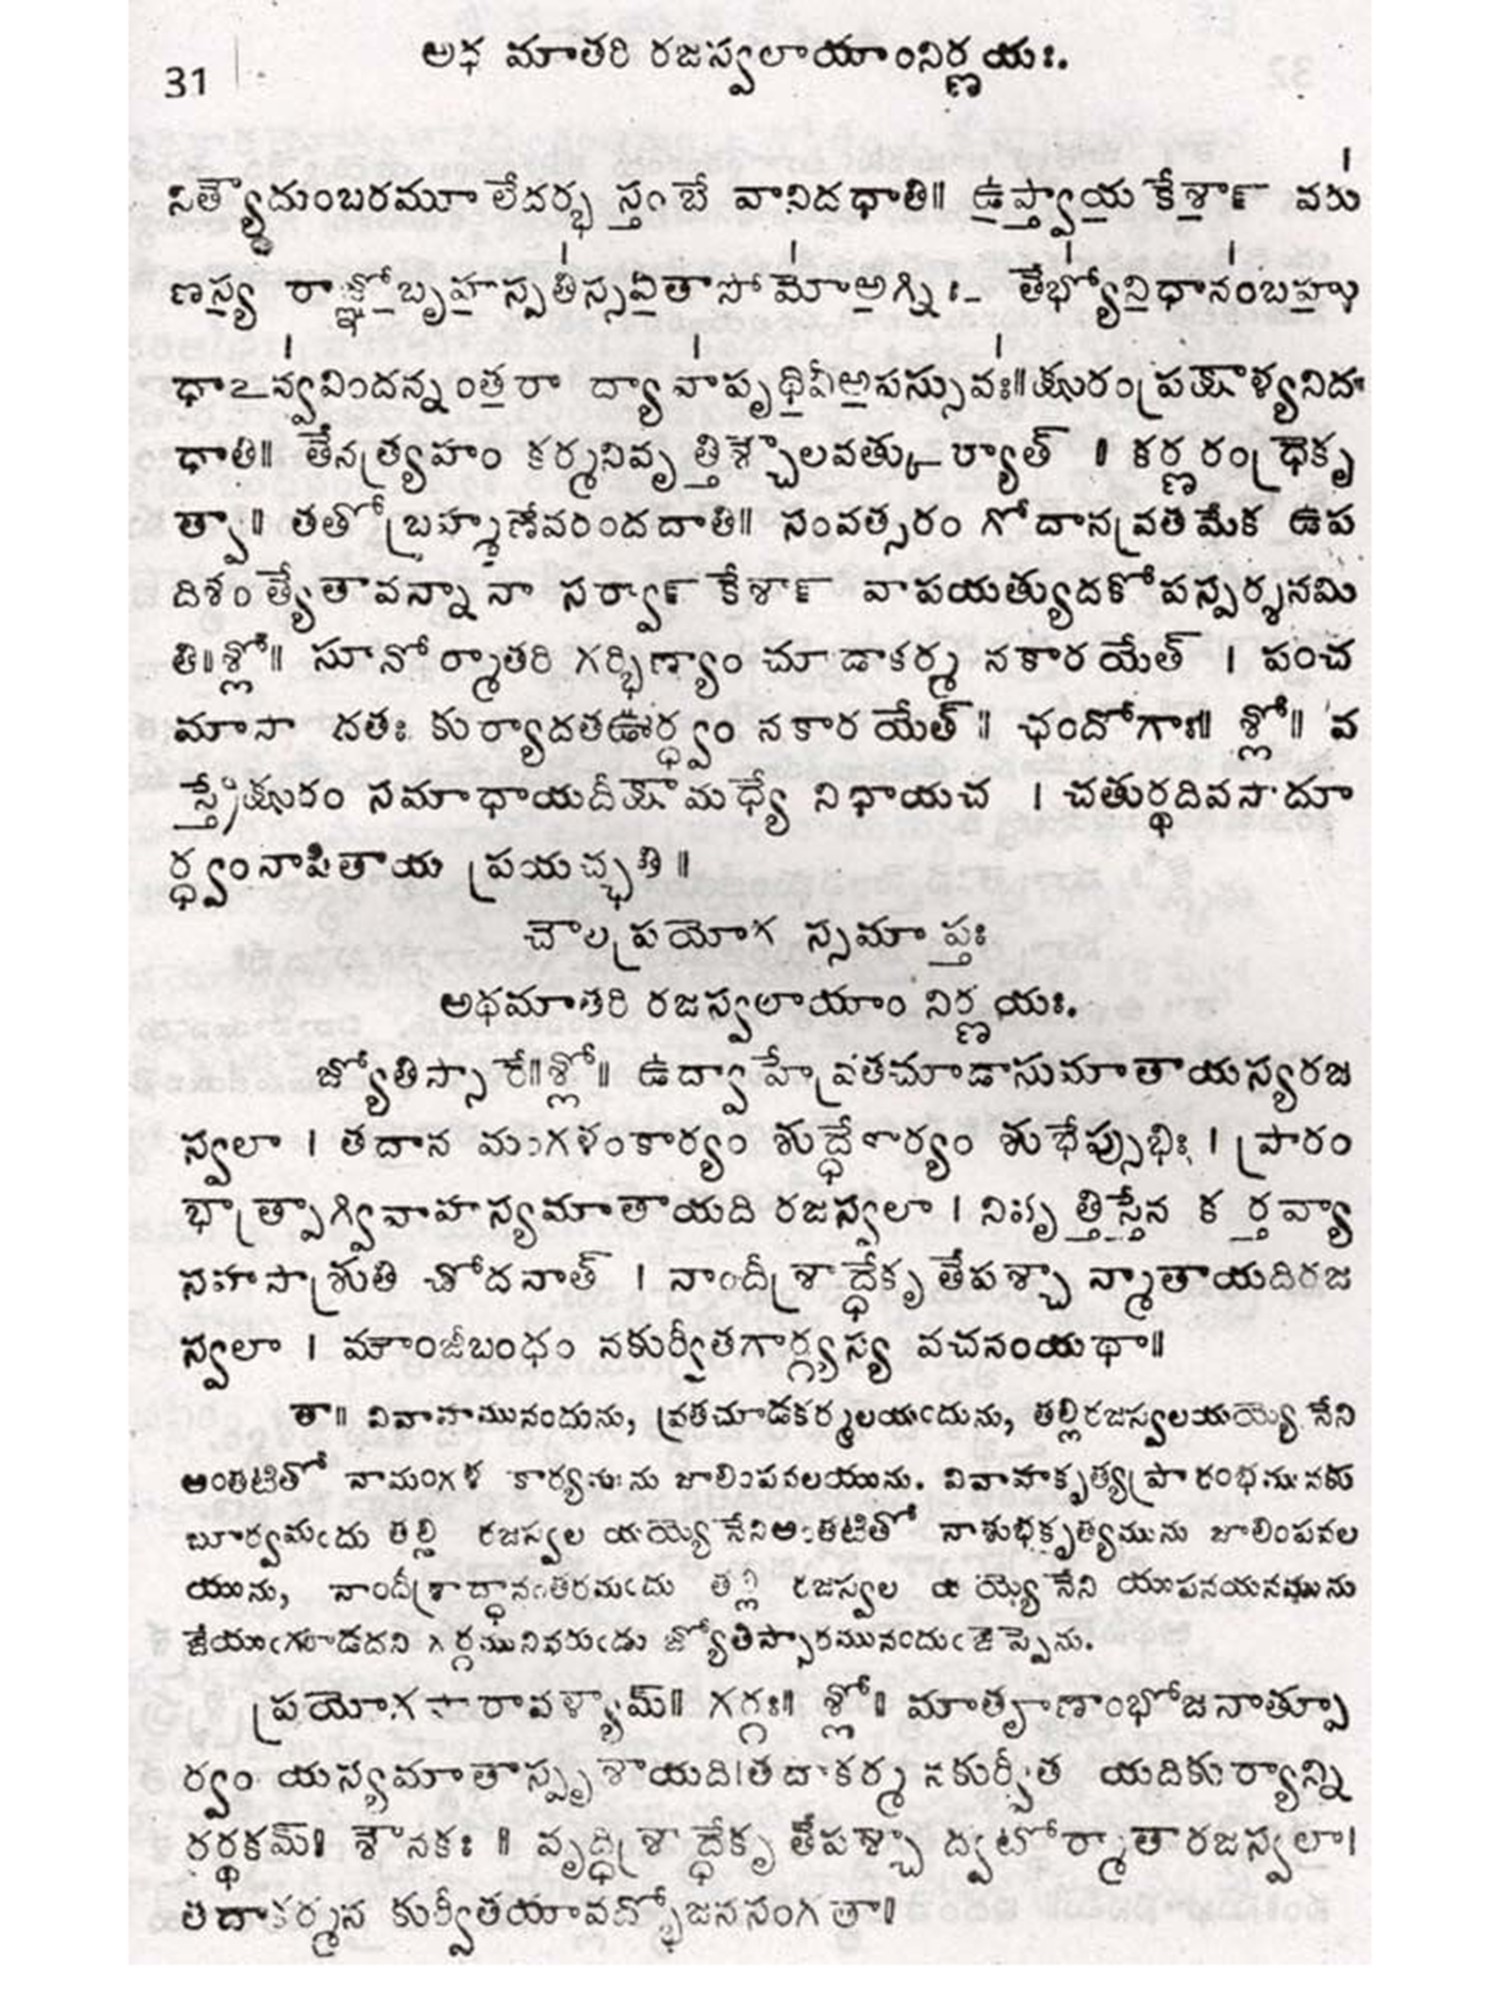 అథ మాతరి రజస్వలాయాంనిర్ణయః.
31
నిత్యౌదుంబరమూలేదర్భ స్తంబే వానిదధాతి॥ ఉప్త్వాయ కేశా౯ వరు
ణస్య రాజ్ఞోబృహస్పతిస్సవితాసోమోఅగ్నిః- తేభ్యోనిధానంబహు
ధాఽన్వవిందన్నంతరా ద్యావాపృథివీఅపస్సువః॥క్షురంప్రక్షాళ్యనిద
ధాతి॥ తేనత్ర్యహం కర్మనివృత్తిశ్చౌలవత్కుర్యాత్ । కర్ణరంధ్రేకృ
త్వా॥ తతోబ్రహ్మణేవరందదాతి॥ సంవత్సరం గోదానవ్రతమేక ఉప
దిశంత్యేతావన్నానా సర్వా౯ కేశా౯ వాపయత్యుదకోపస్పర్శనమి
తి॥శ్లో॥ సూనోర్మాతరి గర్భిణ్యాం చూడాకర్మ నకారయేత్ । పంచ
మాసా దతః కుర్యాదతఊర్ధ్వం నకారయేత్॥ ఛందోగాః॥ శ్లో॥ వ
స్త్రేక్షురం సమాధాయదీక్షామధ్యే నిధాయచ । చతుర్థదివసాదూ
ర్ధ్వంనాపితాయ ప్రయచ్ఛతి॥
చౌలప్రయోగ స్సమాప్తః
అథమాతరి రజస్వలాయాం నిర్ణయః.
జ్యోతిస్సారే॥శ్లో॥ ఉద్వాహేవ్రతచూడాసుమాతాయస్యరజ
స్వలా । తదాన మంగళంకార్యం శుద్ధేకార్యం శుభేప్సుభిః । ప్రారం
భాత్ప్రాగ్వివాహస్యమాతాయది రజస్వలా । నివృత్తిస్తేన కర్తవ్యా
సహసాశ్రుతి చోదనాత్ । నాందీశ్రాద్ధేకృతేపశ్చా న్మాతాయదిరజ
స్వలా । మౌంజీబంధం నకుర్వీతగార్గ్యస్య వచనంయథా॥
తా॥ వివాహమునందును, వ్రతచూడకర్మలయఁదును, తల్లిరజస్వలయయ్యె నేని
అంతటితో నామంగళ కార్యమును జాలింపవలయును. వివాహకృత్యప్రారంభమునకు
బూర్వమఁదు తల్లి రజస్వల యయ్యె నేనిఅంతటితో నాశుభకృత్యమును జాలింపవల
యును, నాందీశ్రాద్ధానంతరమఁదు తల్లి రజస్వల యయ్యె నేని యుపనయనమును
జేయఁగూడదని గర్గమునివరుఁడు జ్యోతిస్సారమునందుఁజెప్పెను.
ప్రయోగసారావళ్యామ్॥ గర్గః॥ శ్లో॥ మాతౄణాంభోజనాత్పూ
ర్వం యస్యమాతాస్పృశాయది।తదాకర్మ నకుర్వీత యదికుర్యాన్ని
రర్థకమ్। శౌనకః ॥ వృద్ధిశ్రాద్ధేకృతేపశ్చా ద్వటోర్మాతారజస్వలా।
తదాకర్మన కుర్వీతయావద్భోజనసంగతా॥